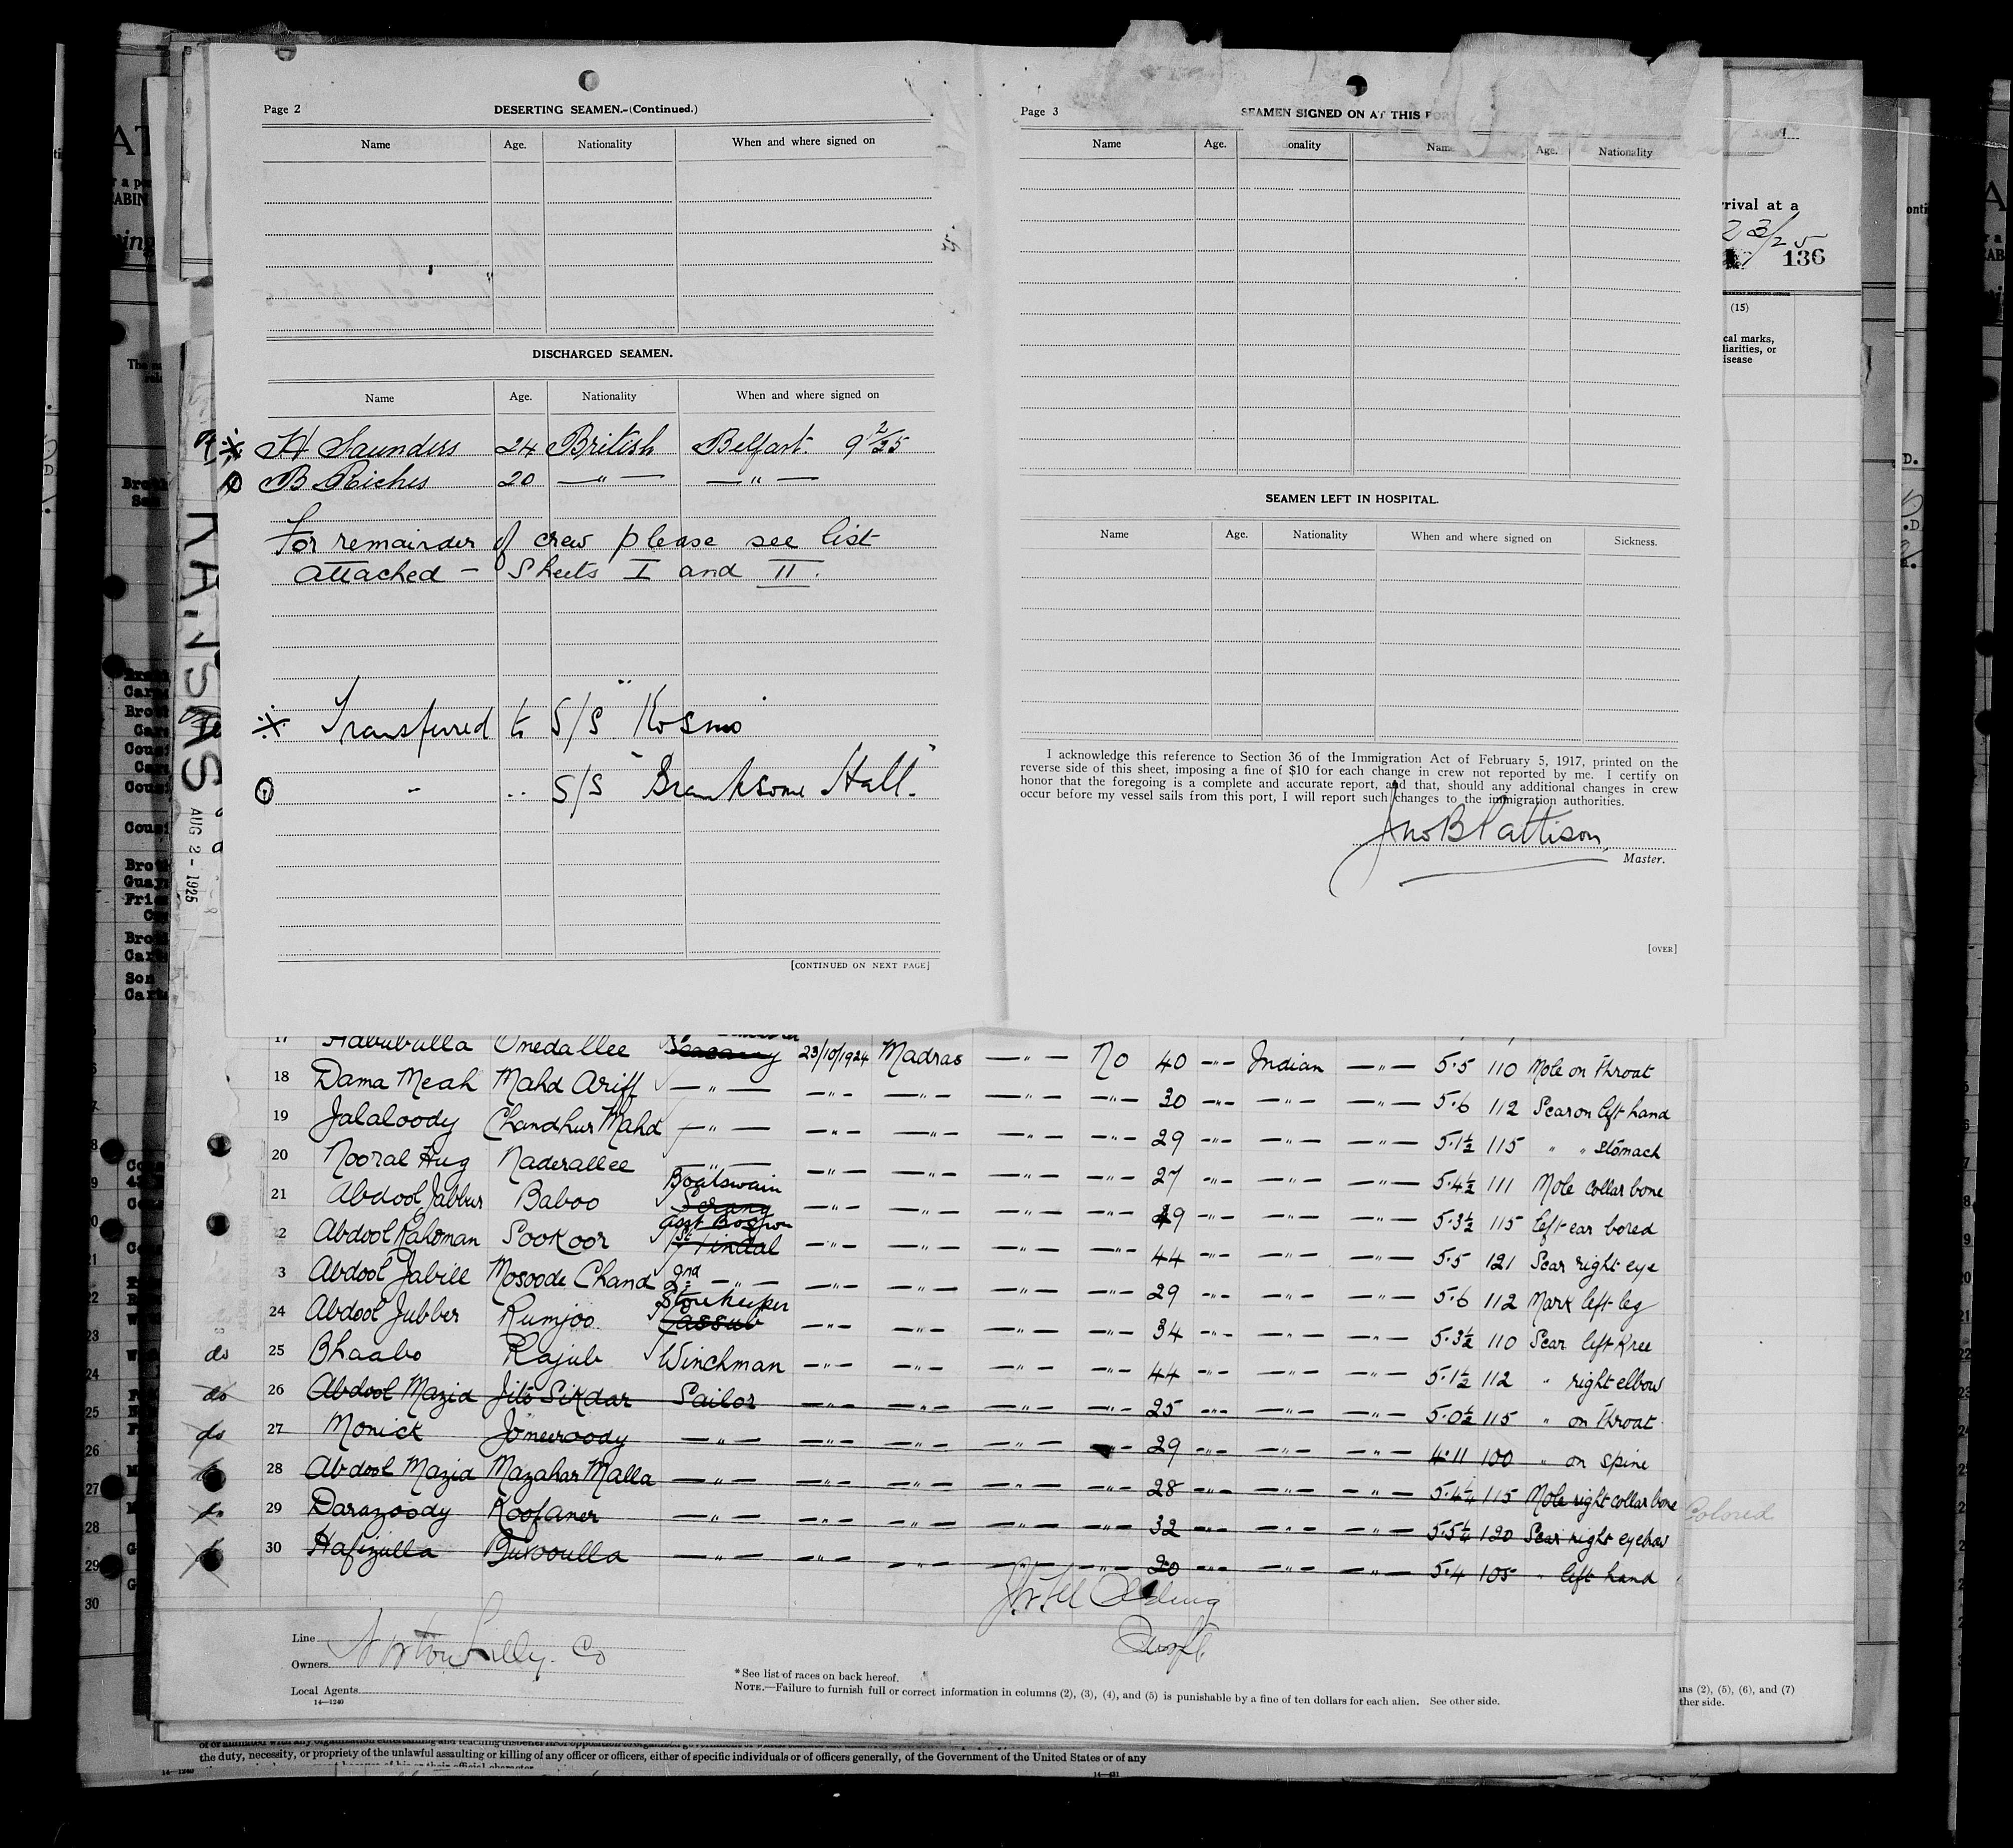 Page 2
DESERTING SEAMEN.-(Continued.)
Name Age. Nationality When and where signed on
DISCHARGED SEAMEN.
Name Age. Nationality When and where signed on
H Saunders 24 British Belfast. 9 2/25
B Riches 20 —"— —"—
For remainder of crew please see list
attached - Sheets I and II.
Transferred to S/S "Kosmo"
" .. S/S "Branksome Hall."
[CONTINUED ON NEXT PAGE]
Page 3
SEAMEN SIGNED ON AT THIS POR
Name Age. Nationality Name Age. Nationality
SEAMEN LEFT IN HOSPITAL.
Name Age. Nationality When and where signed on Sickness.
I acknowledge this reference to Section 36 of the Immigration Act of February 5, 1917, printed on the
reverse side of this sheet, imposing a fine of $10 for each change in crew not reported by me. I certify on
honor that the foregoing is a complete and accurate report, and that, should any additional changes in crew
occur before my vessel sails from this port, I will report such changes to the immigration authorities.
Jno B Pattison
Master.
[OVER]
rival at a
2 3/25
136
(15)
cal marks,
liarities, or
isease
KANSAS
AUG 2 - 1925
17 Habubulla Omedallee 23/10/1924 Madras —"— No 40 —"— Indian —"— 5.5 110 Mole on Throat
18 Dama Meah Mahd Ariff —"— —"— —"— —"— —"— 30 —"— —"— —"— 5.6 112 Scar on left hand
19 Jalaloody Chandhur Mahd —"— —"— —"— —"— —"— 29 —"— —"— —"— 5.1½ 115 " " Stomach
20 Nooral Hug Naderallee —"— —"— —"— —"— —"— 27 —"— —"— —"— 5.4½ 111 Mole collar bone
21 Abdool Jabbur Baboo Boatswain Serang —"— —"— —"— —"— 49 —"— —"— —"— 5.3½ 115 left ear bored
2 Abdool Rahoman Sookoor Asst Bos'wn 1st Tindal —"— —"— —"— —"— 44 —"— —"— —"— 5.5 121 Scar right eye
3 Abdool Jabill Mosoode Chand 2nd —"— —"— —"— —"— —"— 29 —"— —"— —"— 5.6 112 Mark left leg
24 Abdool Jubber Rumjoo Storekeeper Cassub —"— —"— —"— —"— 34 —"— —"— —"— 5.3½ 110 Scar left Knee
do 25 Bhaabo Rajub Winchman —"— —"— —"— —"— 44 —"— —"— —"— 5.1½ 112 " right elbow
do 26 Abdool Mazid Jito Sikdar Sailor —"— —"— —"— —"— 25 —"— —"— —"— 5.0½ 115 " on Throat
do 27 Monick Joneeroody —"— —"— —"— —"— —"— 29 —"— —"— —"— 4.11 100 " on spine
28 Abdool Mazid Mazahar Malla —"— —"— —"— —"— —"— 28 —"— —"— —"— 5.4¼ 115 Mole right collar bone
29 Darazoody Koofaner —"— —"— —"— —"— —"— 32 —"— —"— —"— 5.5¼ 120 Scar right eyebrow Colored
30 Hafizulla —"— —"— —"— —"— —"— 20 —"— —"— —"— 5.4 105 " left hand
Line
Owners Norton Lilly Co
Local Agents
14—1240
*See list of races on back hereof.
NOTE.—Failure to furnish full or correct information in columns (2), (3), (4), and (5) is punishable by a fine of ten dollars for each alien. See other side.
ns (2), (5), (6), and (7)
ther side.
the duty, necessity, or propriety of the unlawful assaulting or killing of any officer or officers, either of specific individuals or of officers generally, of the Government of the United States or of any